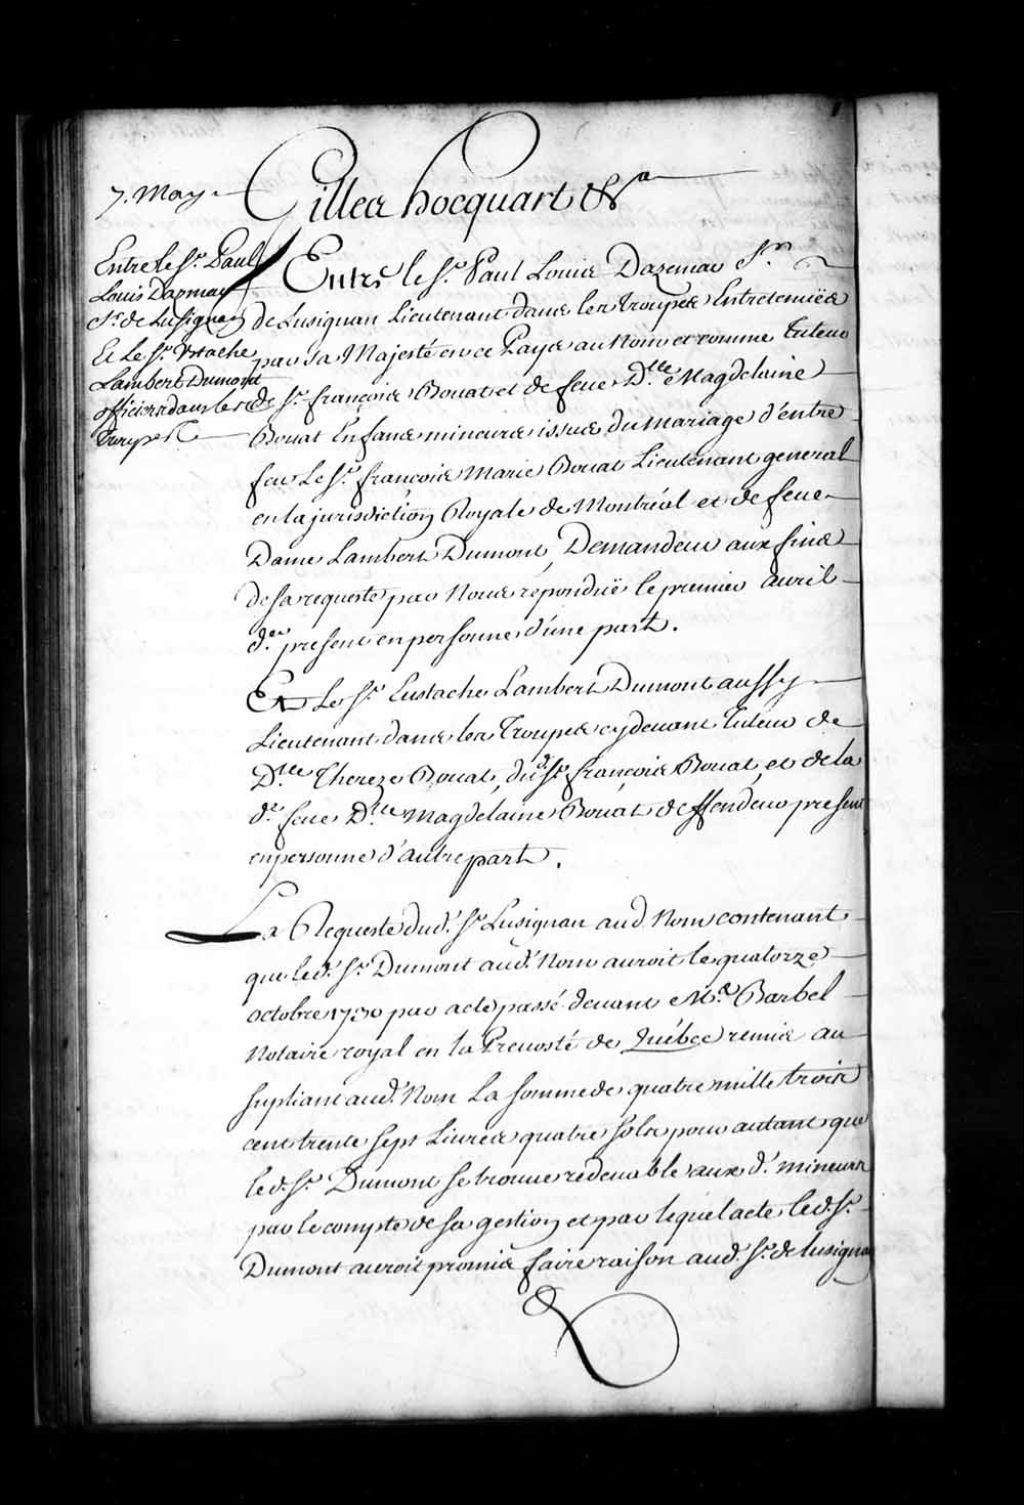 7. May
Gilles hocquart &ca
Entre le Sr. Paul
Louis Dazmar
Sr. de Lusignan
Et Le Sr. Ustache
Lambert Dumont
officiers dans les
troupes &c
Entre le Sr. Paul Louis Dazemar Sr.
de Lusignan Lieutenant dans les troupes Entretenües
par sa Majesté en ce Pays au Nom et comme Tuteur
de Sr. françois Boüat et de feue Dlle. Magdelaine
Boüat Enfans mineurs issus du mariage d'entre
feu Le Sr. françois Marie Boüat Lieutenant general
en la jurisdiction Royale de Montréal et de feue
Dame Lambert Dumont, Demandeur aux fins
de sa requeste par Nous répondüe le premier avril
der. present en personne d'une part.
Et Le Sr. Eustache Lambert Dumont aussy
Lieutenant dans les Troupes cydevant Tuteur de
Dlle Thereze Boüat, dud. Sr. françois Boüat, et de la
de. feue Dlle Magdelaine Boüat deffendeur present
en personne d'autre part.
La Requeste dud. Sr. Lusignan aud. Nom contenant
que led. Sr. Dumont aud. Nom auroit le quatorze
octobre 1730 par acte passé devant Me. Barbel
Notaire royal en la Prevosté de Québec remis au
supliant aud. Nom La somme de quatre mille trois
cent trente sept Livres quatre sols pour autant que
led. Sr. Dumont se trouve redevable aux d. mineurs
par le compte de sa gestion et par lequel acte led. Sr.
Dumont auroit promis faire raison aud. Sr. de lusignan